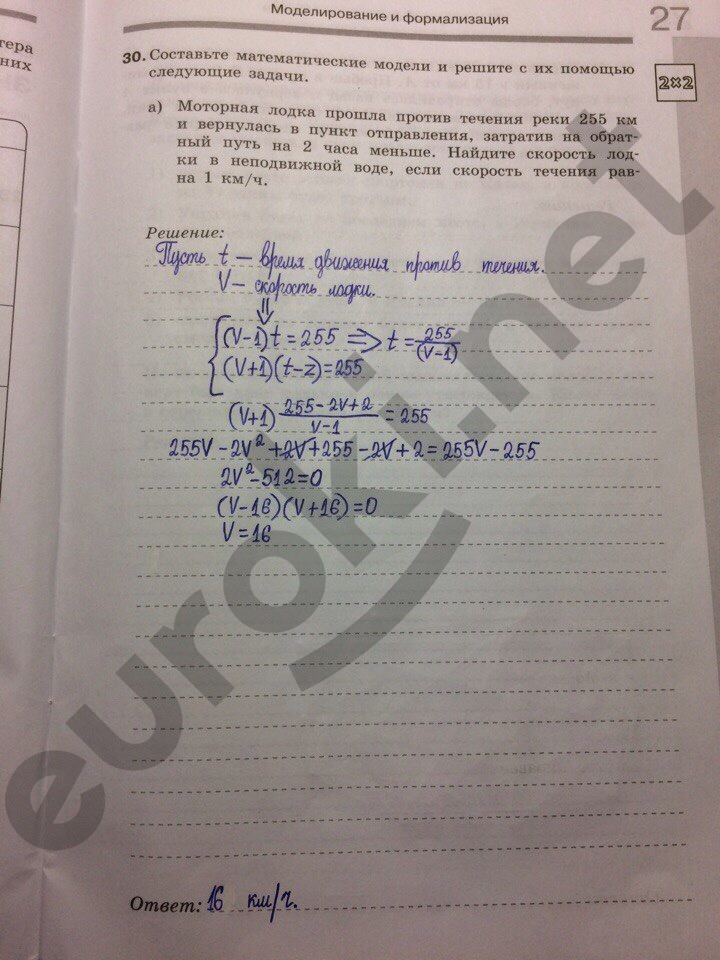 Моделирование и формализация
27
тера
них
30. Составьте математические модели и решите с их помощью
следующие задачи.
2×2
а) Моторная лодка прошла против течения реки 255 км
и вернулась в пункт отправления, затратив на обрат-
ный путь на 2 часа меньше. Найдите скорость лод-
ки в неподвижной воде, если скорость течения рав-
на 1 км/ч.
Решение:
Пусть t — время движения против течения.
V — скорость лодки.
⇓
{(V-1)t = 255 => t = 255/(V-1)
(V+1)(t-2)=255
(V+1) (255-2V+2)/(V-1) = 255
255V - 2V² + 2V + 255 - 2V + 2 = 255V - 255
2V² - 512 = 0
(V-16)(V+16)=0
V = 16
Ответ: 16 км/ч.
euroki.net